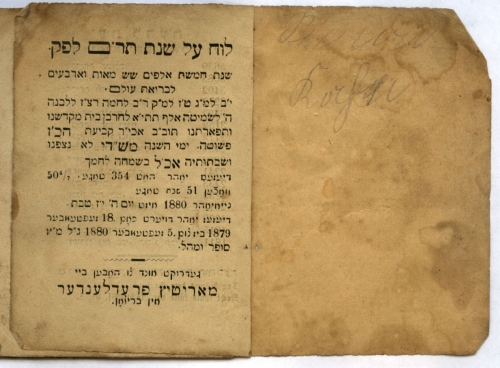 לוח על שנת תר״ם לפק.
שנת חמשת אלפים שש מאות וארבעים
לבריאת עולם.
י״ב למ״ג ט״ז למ״ק ר״ב לחמה רצ״ז ללבנה
ה׳ לשמיטה אלף תתי״א לחרבן בית מקדשנו
ותפארתנו תוב״ב אכי״ר קביעת הכ״ז
פשוטה. ימי השנה מש״די לא נצפנו
ושבתותיה אכ״ל בשמחה לחמך
דיעזעס יאהר האט 354 טאגע,
וואכען 51 טאגע
נייאיאהר 1880 איזט יום ה׳ יז טבת.
דיעזעס יאהר דויערט פאם 18. זעפטעמבער
1879 ביז צום 5. זעפטעמבער 1880 נ״ל מ״ץ
סופר ומהל.
געדרוקט אונד צו האבען ביי
מאריטץ פריעדלענדער
אין בריזען.